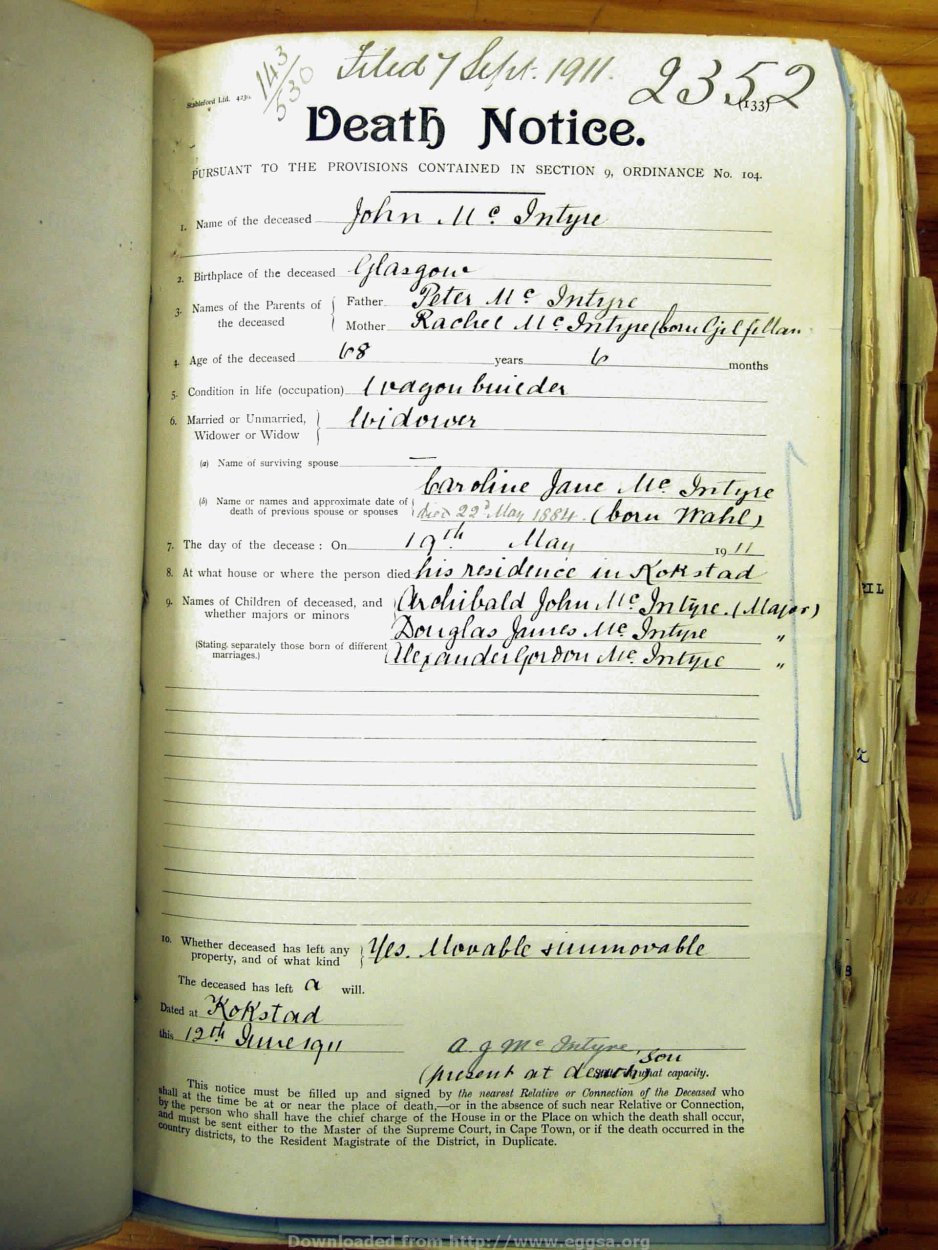 143
530
Filed 7 Sept. 1911.
2352
(133)
Death Notice.
PURSUANT TO THE PROVISIONS CONTAINED IN SECTION 9, ORDINANCE No. 104.
1. Name of the deceased John Mc Intyre
2. Birthplace of the deceased Glasgow
3. Names of the Parents of the deceased
Father Peter Mc Intyre
Mother Rachel Mc Intyre (born Gilfillan
4. Age of the deceased 68 years 6 months
5. Condition in life (occupation) Wagonbuilder
6. Married or Unmarried, Widower or Widow Widower
(a) Name of surviving spouse —
Caroline Jane Mc Intyre
(b) Name or names and approximate date of death of previous spouse or spouses died 22d May 1884. (born Wahl)
7. The day of the decease: On 19th May 1911
8. At what house or where the person died his residence in Kokstad
9. Names of Children of deceased, and whether majors or minors Archibald John Mc Intyre. (Major)
Douglas James Mc Intyre "
(Stating separately those born of different marriages.) Alexander Gordon Mc Intyre "
10. Whether deceased has left any property, and of what kind Yes. Movable & immovable
The deceased has left a will.
Dated at Kokstad
this 12th June 1911
A. J Mc Intyre, Son
(present at death) what capacity.
This notice must be filled up and signed by the nearest Relative or Connection of the Deceased who
shall at the time be at or near the place of death,—or in the absence of such near Relative or Connection,
by the person who shall have the chief charge of the House in or the Place on which the death shall occur,
and must be sent either to the Master of the Supreme Court, in Cape Town, or if the death occurred in the
country districts, to the Resident Magistrate of the District, in Duplicate.
Downloaded from http://www.eggsa.org